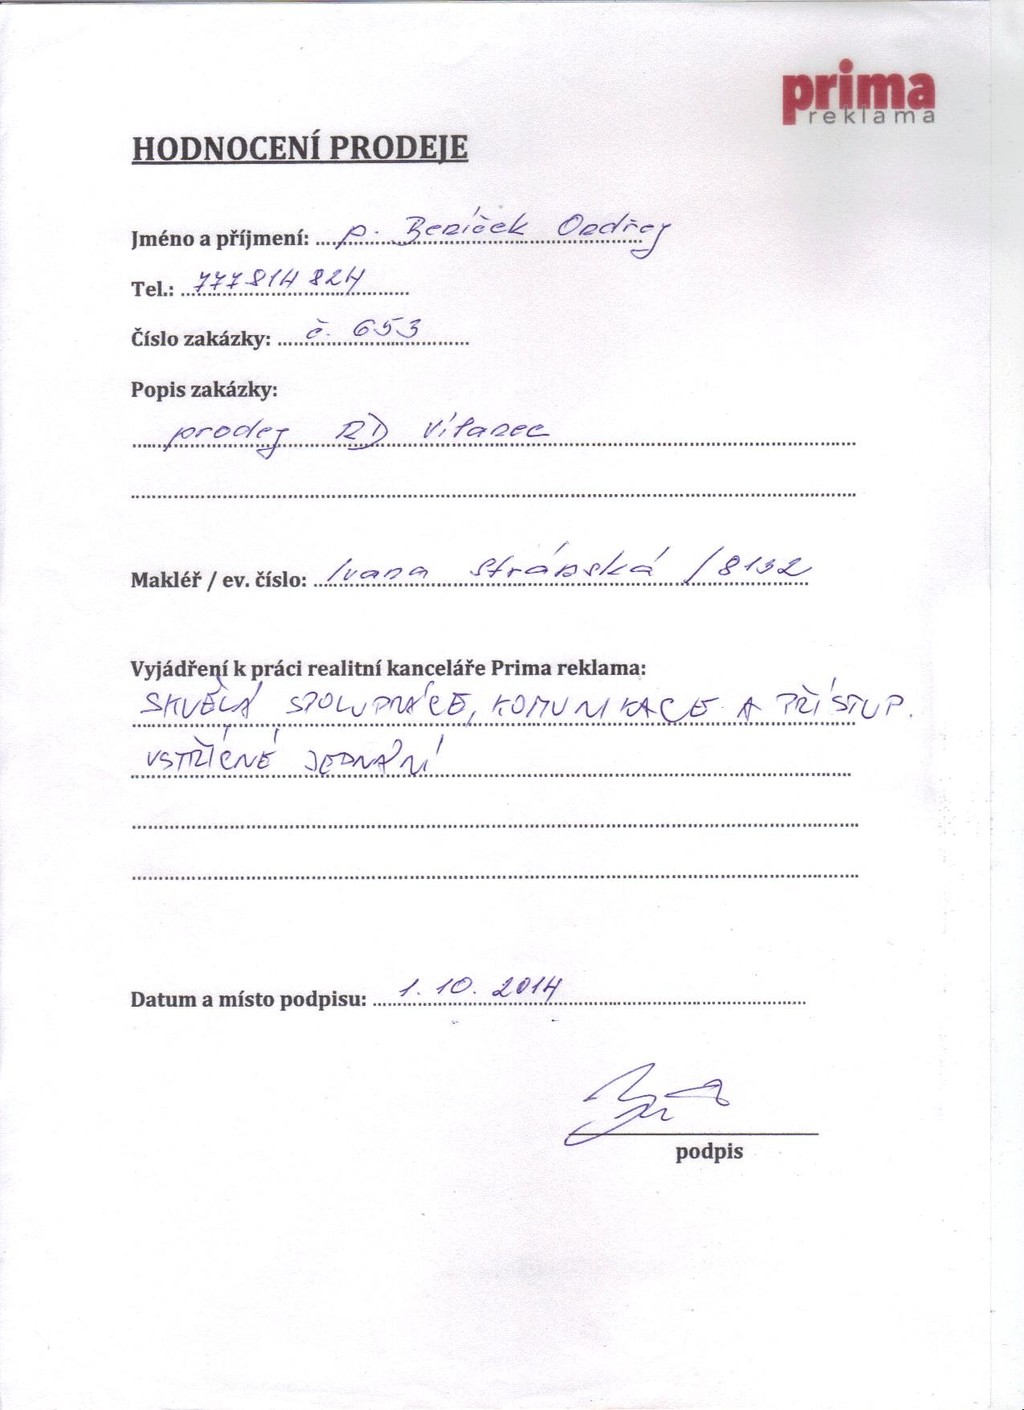 prima
reklama
HODNOCENÍ PRODEJE
Jméno a příjmení: p. Beníček Ondřej
Tel.: 777 814 824
Číslo zakázky: č. 653
Popis zakázky:
prodej RD Vítanec
Makléř / ev. číslo: Ivana Stránská /8132
Vyjádření k práci realitní kanceláře Prima reklama:
SKVĚLÁ SPOLUPRÁCE, KOMUNIKACE A PŘÍSTUP.
VSTŘÍCNÉ JEDNÁNÍ
Datum a místo podpisu: 1. 10. 2014
podpis